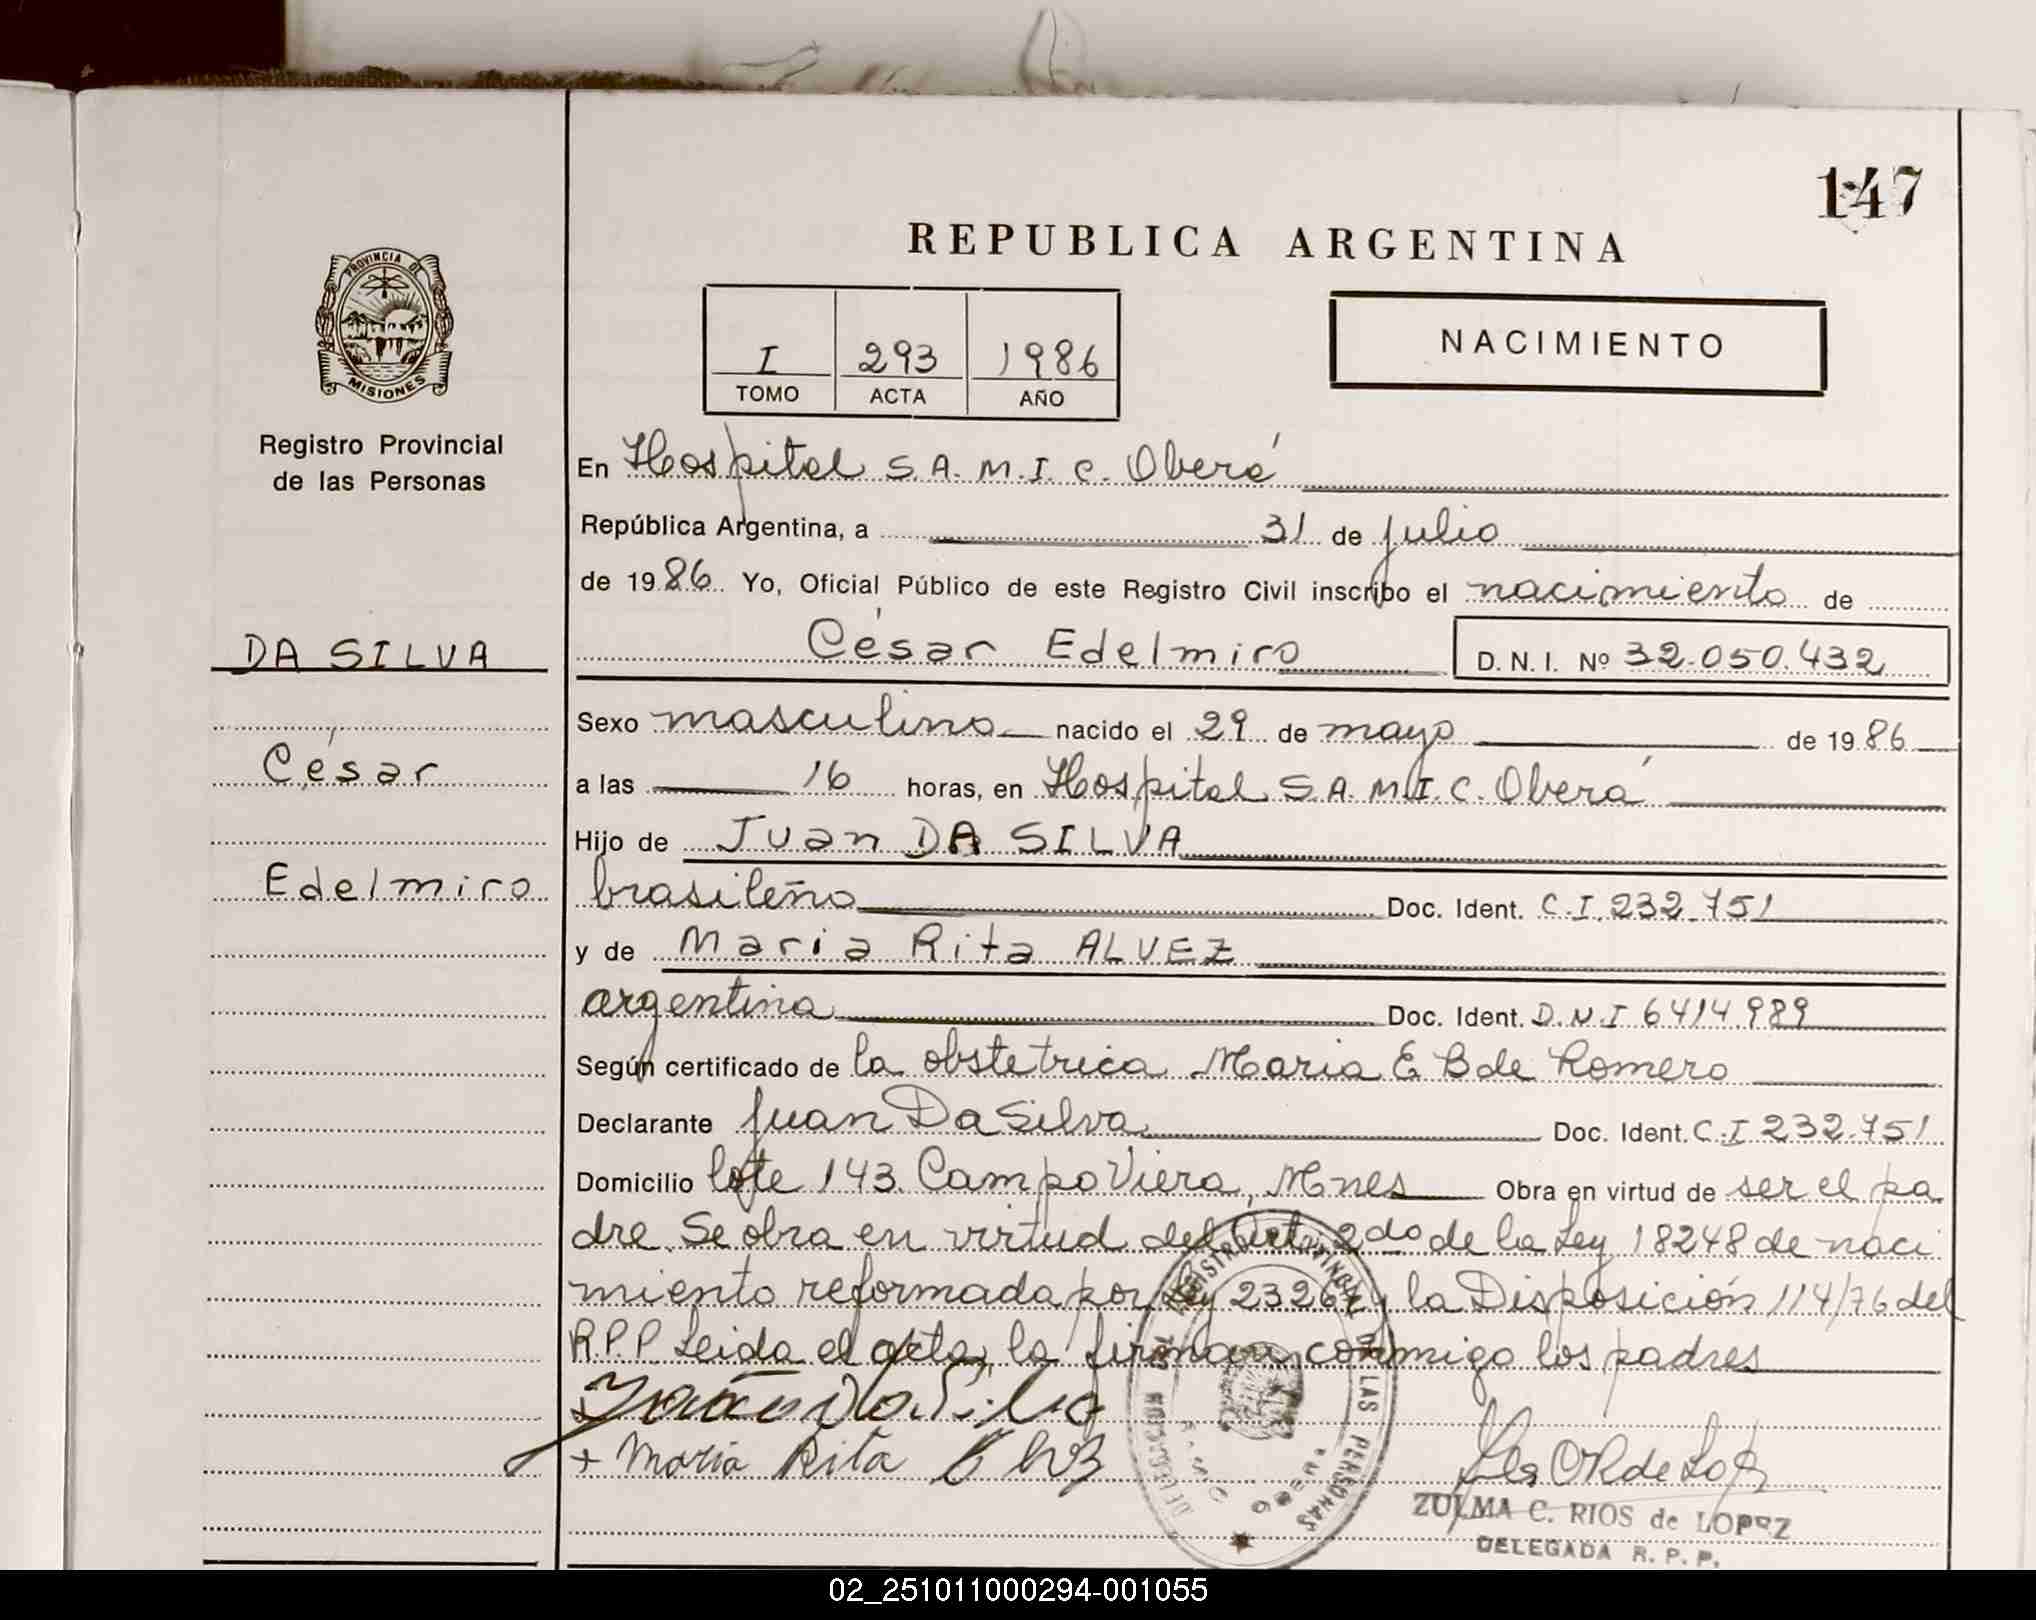 147
REPUBLICA ARGENTINA
PROVINCIA DE
MISIONES
I 293 1986
TOMO ACTA AÑO
NACIMIENTO
Registro Provincial
de las Personas
En Hospital S.A.M.I.C. Oberá
República Argentina, a 31 de julio
de 1986 Yo, Oficial Público de este Registro Civil inscribo el nacimiento de
DA SILVA
César Edelmiro D. N. I. Nº 32.050.432
Sexo masculino nacido el 29 de mayo de 1986
César
a las 16 horas, en Hospital S.A.M.I.C. Oberá
Hijo de Juan DA SILVA
Edelmiro
brasileño Doc. Ident. C.I. 232.751
y de Maria Rita ALVEZ
argentina Doc. Ident. D.N.I 6414.989
Según certificado de la obstetrica Maria E B de Romero
Declarante Juan Da Silva Doc. Ident. C.I 232.751
Domicilio lote 143 Campo Viera, Mnes Obra en virtud de ser el pa
dre. Se obra en virtud del Art. 2do de la Ley 18248 de naci
miento reformada por Ley 23264 y la Disposición 114/76 del
R.P.P. Leida el acta, la firman conmigo los padres
+ Maria Rita
REGISTRO PROVINCIAL DE LAS PERSONAS
ZULMA C. RIOS de LOPEZ
DELEGADA R. P. P.
02_251011000294-001055